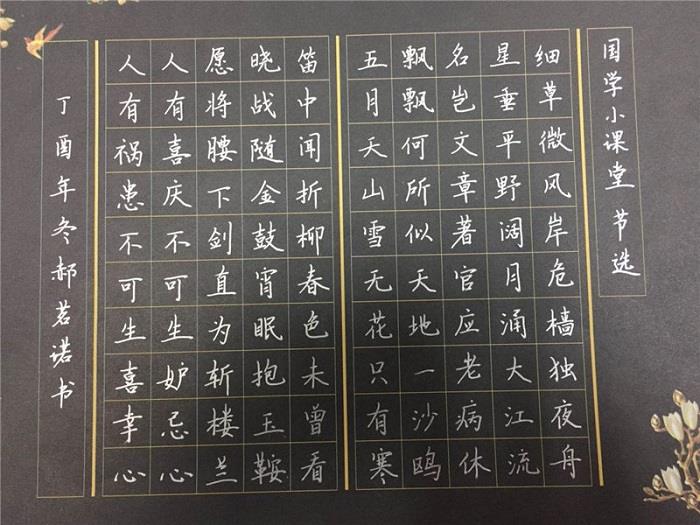 国学小课堂 节选
细草微风岸危樯独夜舟
星垂平野阔月涌大江流
名岂文章著官应老病休
飘飘何所似天地一沙鸥
五月天山雪无花只有寒
笛中闻折柳春色未曾看
晓战随金鼓宵眠抱玉鞍
愿将腰下剑直为斩楼兰
人有喜庆不可生妒忌心
人有祸患不可生喜幸心
丁酉年冬郝茗诺书